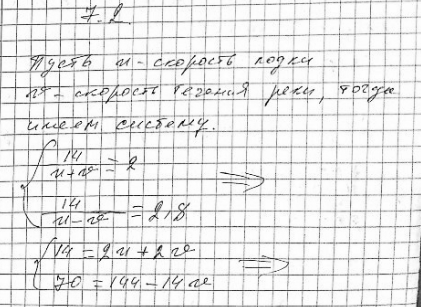 7.2.
Пусть u - скорость лодки
v - скорость течения реки, тогда
имеем систему.
14/(u+v) = 2 ⇒
14/(u-v) = 2,8
14 = 2u + 2v ⇒
70 = 14u - 14v